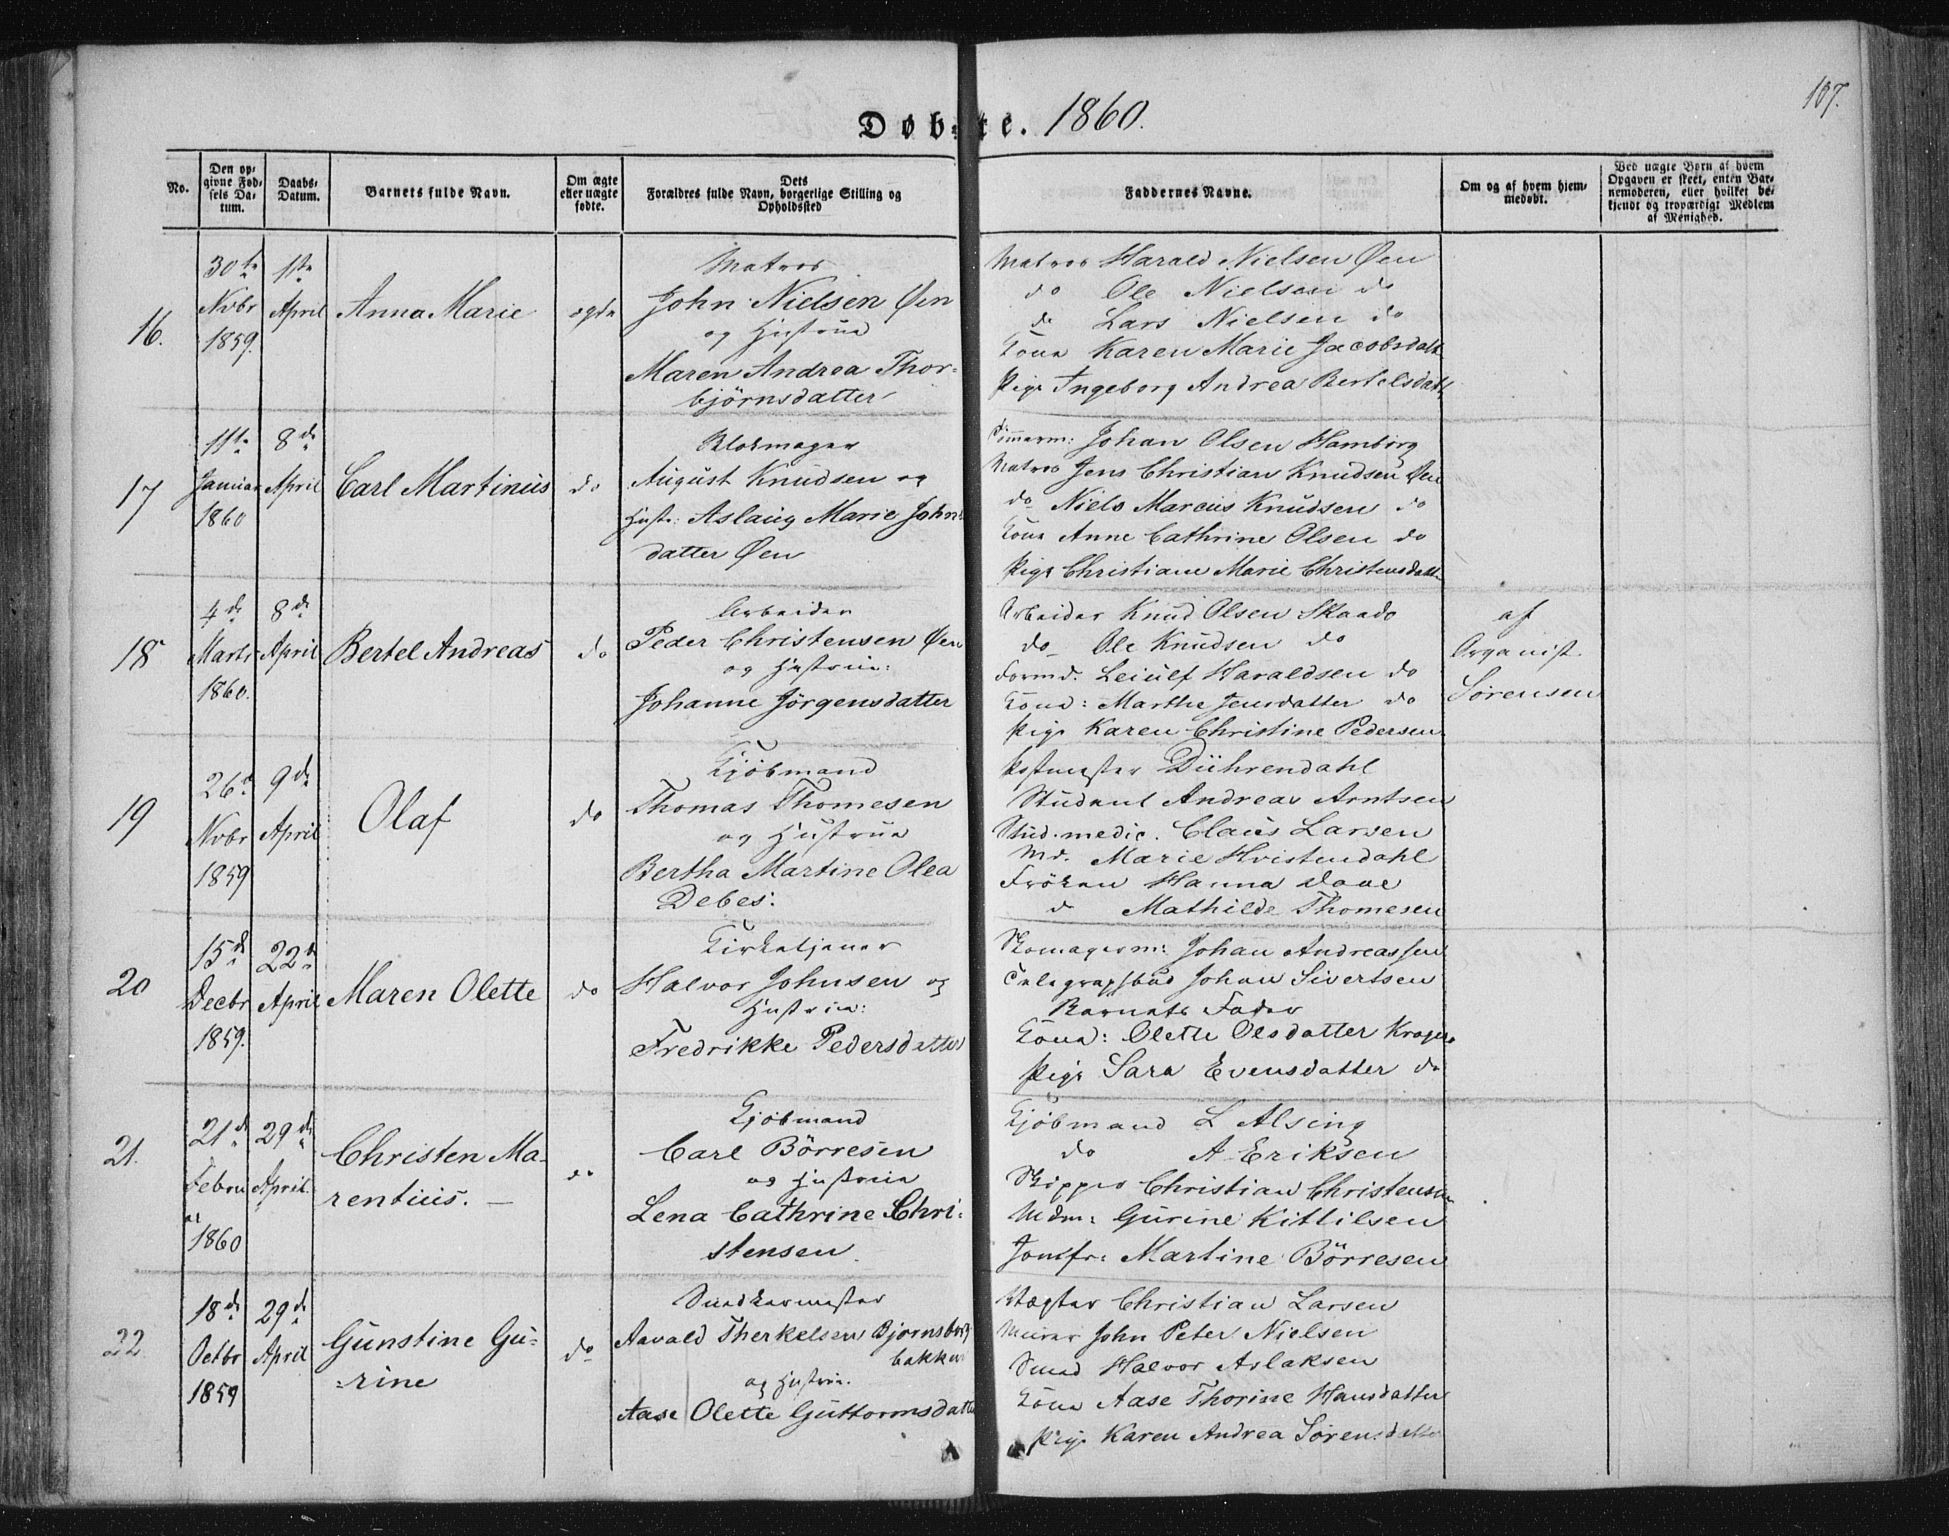 107.
Døbte. 1860.
No.
Den opgivne Fødsels Datum.
Daabs-Datum.
Barnets fulde Navn.
Om ægte eller uægte fødte.
Dets Forældres fulde Navn, borgerlige Stilling og Opholdssted
Faddernes Navne.
Om og af hvem hjemmedøbt.
Ved uægte Børn af hvem Opgaven er skeet, enten Barnemoderen, eller hvilket bekjendt og troværdigt Medlem af Menighed.
16.
30te Nvbr 1859.
1ste April
Anna Marie
ægte
Matros
John Nielsen Øen
og Hustrue
Maren Andrea Thor-
bjørnsdatter
Matros Harald Nielsen Øen
do Ole Nielsen do
do Lars Nielsen do
Kone Karen Marie Jacobsdatt
Pige Ingeborg Andrea Bertelsdatt
17
11te Januar 1860
8de April
Carl Martinus
do
Blokmager
August Knudsen og
Hustr: Aslaug Marie Johns
datter Øen
Tømmerm: Johan Olsen Hamborg
Matros Jens Christian Knudsen Øen
do Niels Marcus Knudsen do
Kone Anne Cathrine Olsen do
Pige Christiane Marie Christensdatter
18
4de Marts 1860.
8de April
Bertel Andreas
do
Arbeider
Peder Christensen Øen
og Hustrue:
Johanne Jörgensdatter
Arbeider Knud Olsen Skaadø
do Ole Knudsen do
Formd. Leiulf Haraldsen do
Kone: Marthe Jensdatter do
Pige Karen Christine Pedersen
af
Organist
Sörensen
19
26de Nvbr 1859
9de April
Olaf
do
Kjöbmand
Thomas Thomesen
og Hustrue
Bertha Martine Olea
Debes:
Postmester Dührendahl
Student Andreas Arntsen
Stud. medic. Claus Larsen
Md. Marie Hvistendahl
Fröken Hanna
d Mathilde Thomesen
20
15de Decbr 1859.
22de April
Maren Olette
do
Kirketjener
Halvor Johnsen og
Hustrue:
Fredrikke Pedersdatter
Skomagerm: Johan Andreassen
Telegrapfbud Johan Sivertsen
Barnets Fader
Kone: Olette Olsdatter Kragerø
Pige Sara Evensdatter do
21.
21de Februar 1860
29de April.
Christen Ma-
rentius. –
do
Kjöbmand
Carl Börresen
og Hustrue
Lena Cathrine Chri-
stensen.
Kjöbmand L Alsing
do A Eriksen
Skipper Christian Christensen
Mdm: Gurine Kittilsen
Jomfr: Martine Börresen
22
18de Octbr 1859
29de April
Gunstine Gu-
rine
do
Snedkermester
Aavald Therkelsen Bjornsborg
bakken
og Hustrue.
Aase Olette Guttormsdatter
Vægter Christian Larsen
Murer John Peter Nielsen
Smed Halvor Aslaksen
Kone Aase Thorine Hansdatter
Pige Karen Andrea Sörensdatter